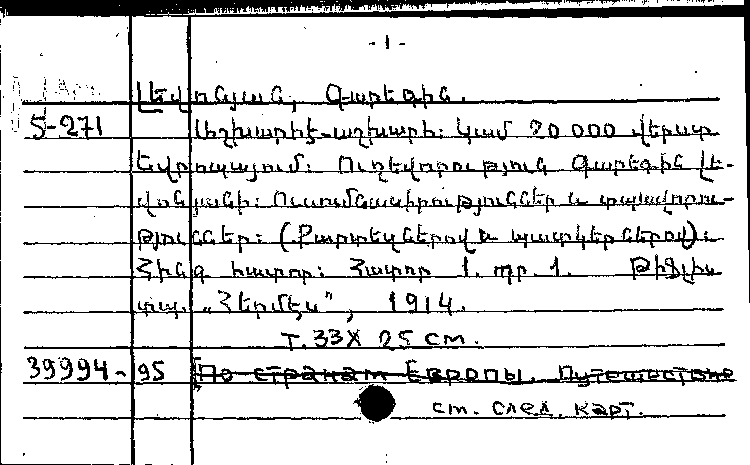 - 1 -
Լևոնյան, Գարեգին.
5-271
Աշխարհէ-աշխարհ: Կամ 20 000 վերստ
Եվրոպայում: Ուղեվորություն Գարեգին Լե-
վոնյանի: Ուսումնասիրություններ և տպավորու-
թյուններ: (Քարտեզներով և պատկերներով):
Հինգ հատոր: Հատոր 1. պր. 1. Թիֆլիս
տպ. „Հերմէս”, 1914.
т. 33x25 см.
39994-95 [По странам Европы. Путешествие
см. след. карт.